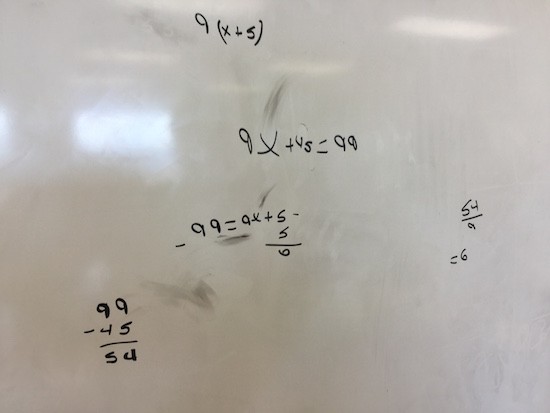 9 (x+5)
9x +45 = 99
- 99 = 9x + 5 -
5
0
54
9
= 6
99
- 45
54